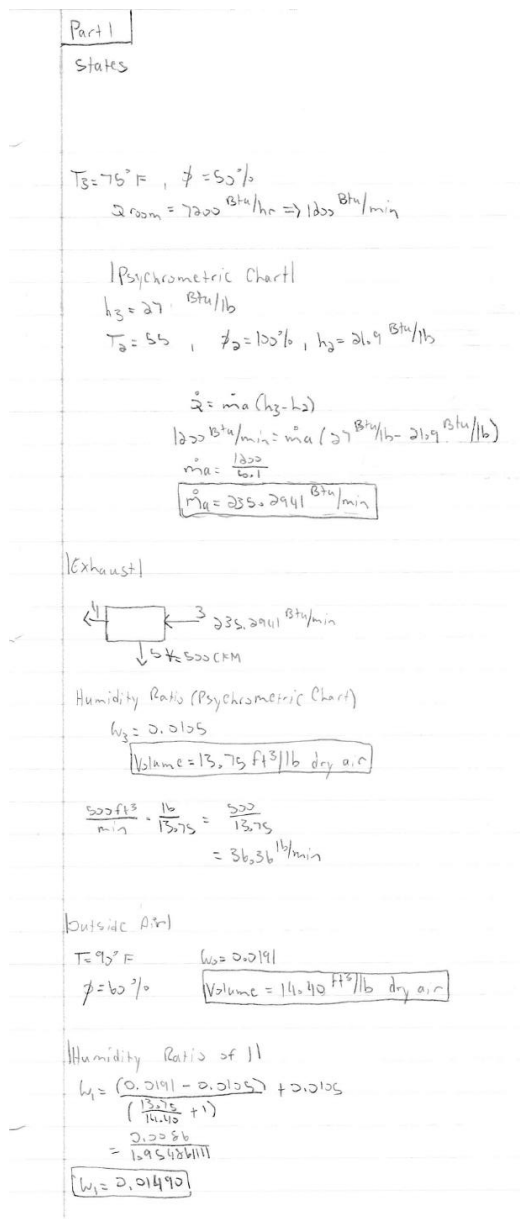 Part 1
States
T3 = 75° F , ϕ = 50%
Q room = 7200 Btu/hr => 1200 Btu/min
|Psychrometric Chart|
h3 = 27 Btu/lb
T2 = 55 , ϕ2 = 100% , h2 = 21.9 Btu/lb
Q̇ = ṁa (h3-h2)
1200 Btu/min = ṁa (27 Btu/lb - 21.9 Btu/lb)
ṁa = 1200/5.1
ṁa = 235.2941 Btu/min
|Exhaust|
4 3 235.2941 Btu/min
5 V = 500 CFM
Humidity Ratio (Psychrometric Chart)
W3 = 0.0105
Volume = 13.75 ft³/lb dry air
500 ft³/min · lb/13.75 = 500/13.75
= 36.36 lb/min
|Outside Air|
T = 90° F W0 = 0.0191
ϕ = 60% Volume = 14.40 ft³/lb dry air
|Humidity Ratio of 1|
W1 = (0.0191 - 0.0105)/(13.75/14.40 + 1) + 0.0105
= 0.0086/1.954861111
W1 = 0.01490